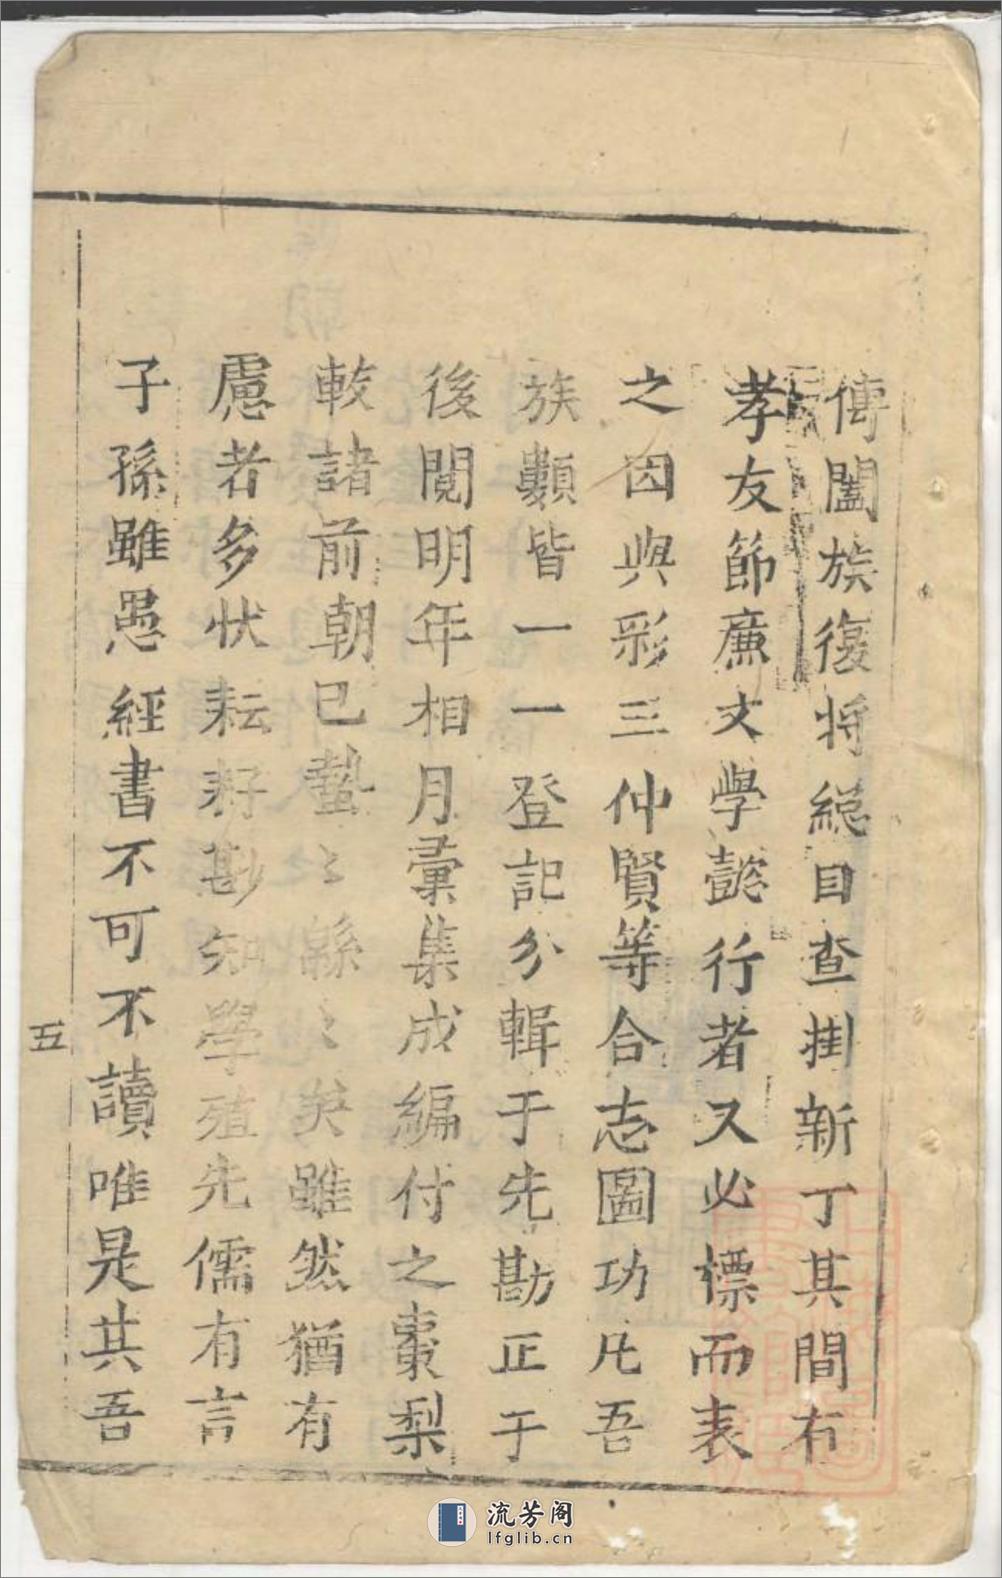 傳闔族復将緫目查掛新丁其間有
孝友節廉文學懿行者又必標而表
之因與彩三仲賢等合志圖功凡吾
族類皆一一登記分輯于先勘正于
後閱明年相月彙集成編付之棗梨
較諸前朝已蟄〻緜〻矣雖然猶有
慮者多状耘耔尠知學殖先儒有言
子孫雖愚經書不可不讀唯是共吾
五
流芳阁
lfglib.cn